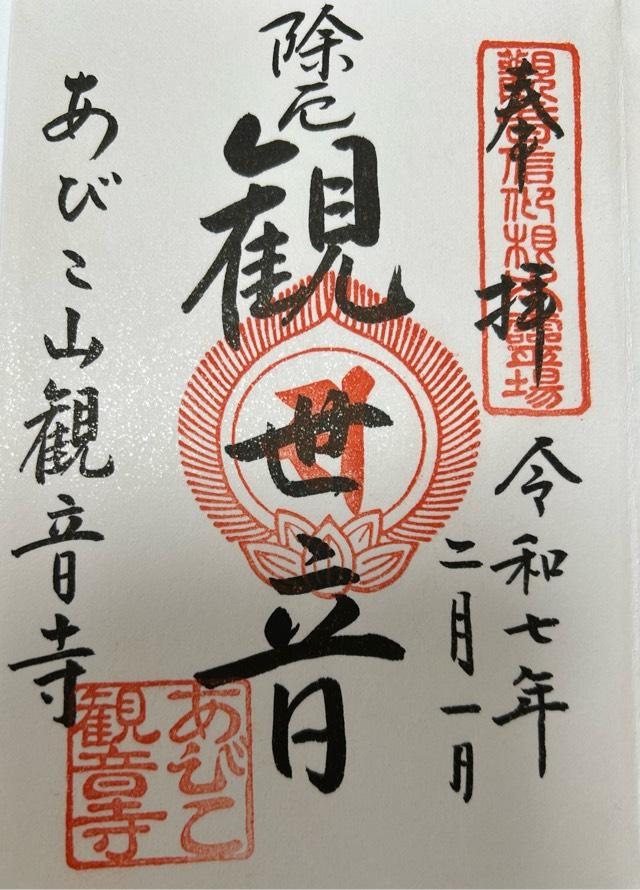 奉拝
觀音信仰根本靈場
令和七年
二月一日
除厄
観世音
あびこ山観音寺
あびこ
観音寺